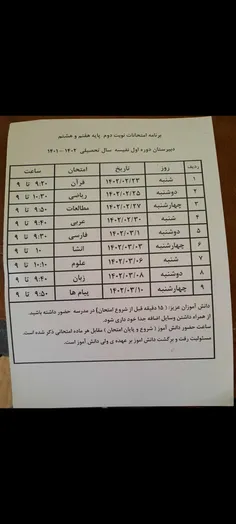 برنامه امتحانات نوبت دوم پایه هفتم و هشتم
دبیرستان دوره اول نفیسه سال تحصیلی ۱۴۰۲ - ۱۴۰۱
ردیف روز تاریخ امتحان ساعت
۱ شنبه ۱۴۰۲/۰۲/۲۳ قرآن ۹ تا ۹:۲۰
۲ دوشنبه ۱۴۰۲/۰۲/۲۵ ریاضی ۹ تا ۱۰:۳۰
۳ چهارشنبه ۱۴۰۲/۰۲/۲۷ مطالعات ۹ تا ۹:۵۰
۴ شنبه ۱۴۰۲/۰۲/۳۰ عربی ۹ تا ۹:۴۰
۵ دوشنبه ۱۴۰۲/۰۳/۱ فارسی ۹ تا ۹:۳۰
۶ چهارشنبه ۱۴۰۲/۰۳/۰۳ انشا ۹ تا ۱۰
۷ شنبه ۱۴۰۲/۰۳/۰۶ علوم ۹ تا ۱۰:۱۰
۸ دوشنبه ۱۴۰۲/۰۳/۰۸ زبان ۹ تا ۹:۴۰
۹ چهارشنبه ۱۴۰۲/۰۳/۱۰ پیام ها ۹ تا ۹:۵۰
دانش آموزان عزیز: (۱۵ دقیقه قبل از شروع امتحان) در مدرسه حضور داشته باشید.
از همراه داشتن وسایل اضافه جدا خود داری شود.
ساعت حضور دانش آموز (شروع و پایان امتحان) مقابل هر ماده امتحانی ذکر شده است.
مسئولیت رفت و برگشت دانش آموز بر عهده ی ولی دانش آموز است.